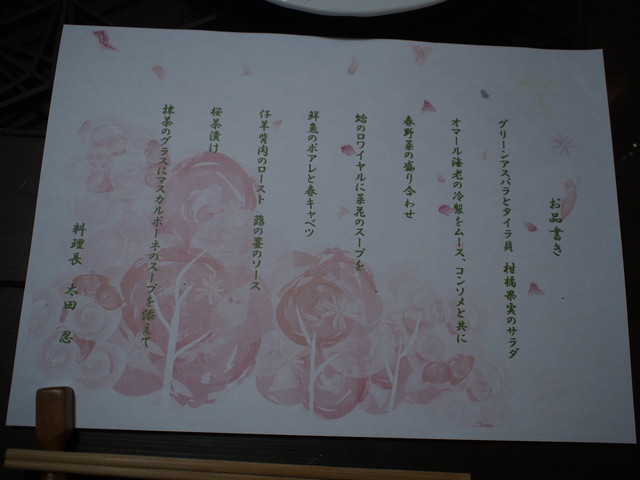 お品書き
グリーンアスパラとタイラ貝 柑橘果実のサラダ
オマール海老の冷製をムース、コンソメと共に
春野菜の盛り合わせ
蛤のロワイヤルに菜花のスープを
鮮魚のポアレと春キャベツ
仔羊背肉のロースト 蕗の薹のソース
桜茶漬け
抹茶のグラスにマスカルポーネのスープを添えて
料理長 太田 忍